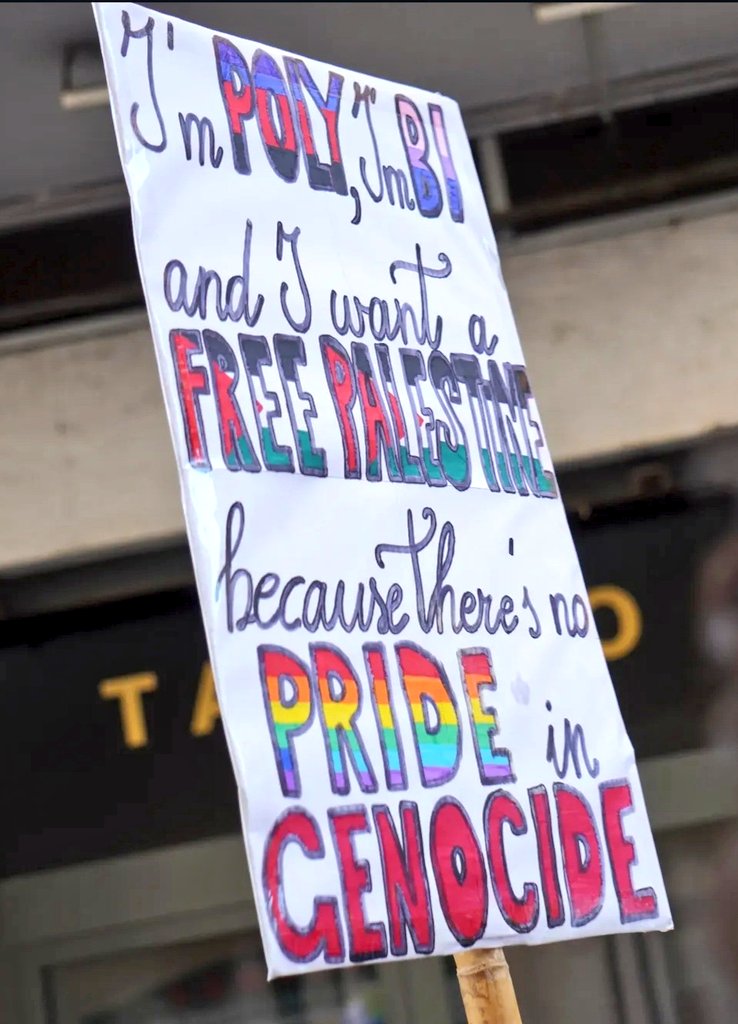 I'm POLY, I'm BI
and I want a
FREE PALESTINE
because there's no
PRIDE in
GENOCIDE